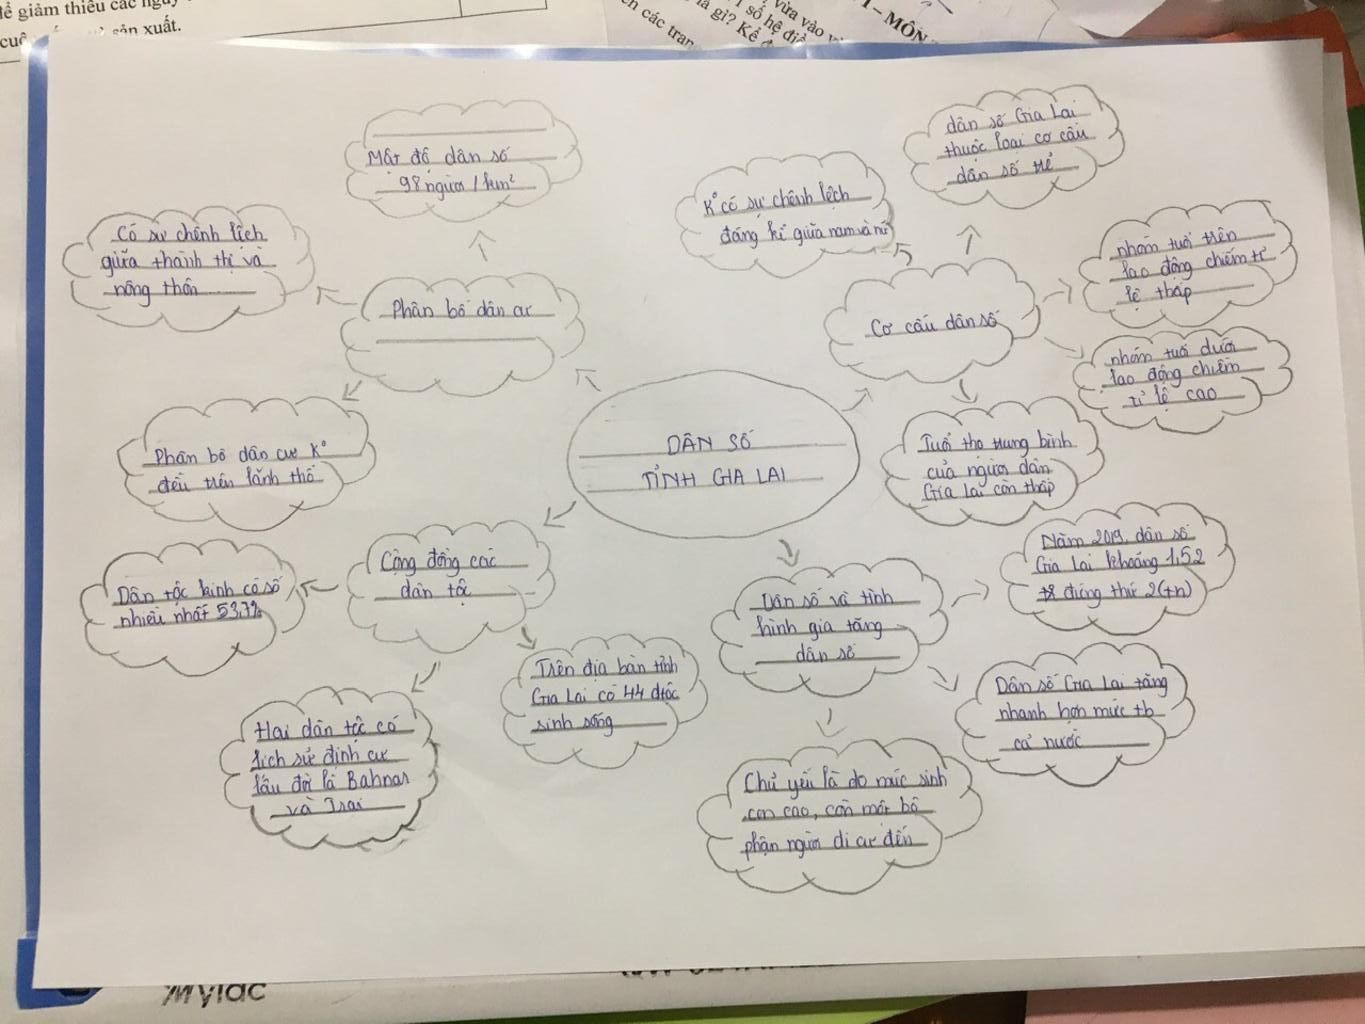 để giảm thiểu các nguy
sản xuất.
vừa vào
số hệ điề
là gì? Kể
các tran
– MÔN
DÂN SỐ
TỈNH GIA LAI
Phân bố dân cư
Mật độ dân số
98 người / km²
Có sự chênh lệch
giữa thành thị và
nông thôn
Phân bố dân cư K°
đều trên lãnh thổ
Cơ cấu dân số
K° có sự chênh lệch
đáng kể giữa nam và nữ
dân số Gia Lai
thuộc loại cơ cấu
dân số trẻ
nhóm tuổi trên
lao động chiếm tỉ
lệ thấp
nhóm tuổi dưới
lao động chiếm
tỉ lệ cao
Tuổi thọ trung bình
của người dân
Gia Lai còn thấp
Cộng đồng các
dân tộc
Dân tộc kinh có số
nhiều nhất 53,7%
Hai dân tộc có
lịch sử định cư
lâu đời là Bahnar
và Jrai
Trên địa bàn tỉnh
Gia Lai có 44 dtộc
sinh sống
Dân số và tình
hình gia tăng
dân số
Năm 2019, dân số
Gia Lai khoảng 1,52
đứng thứ 2(tn)
Dân số Gia Lai tăng
nhanh hơn mức tb
cả nước
Chủ yếu là do mức sinh
con cao, còn một bộ
phận người di cư đến
Mylac